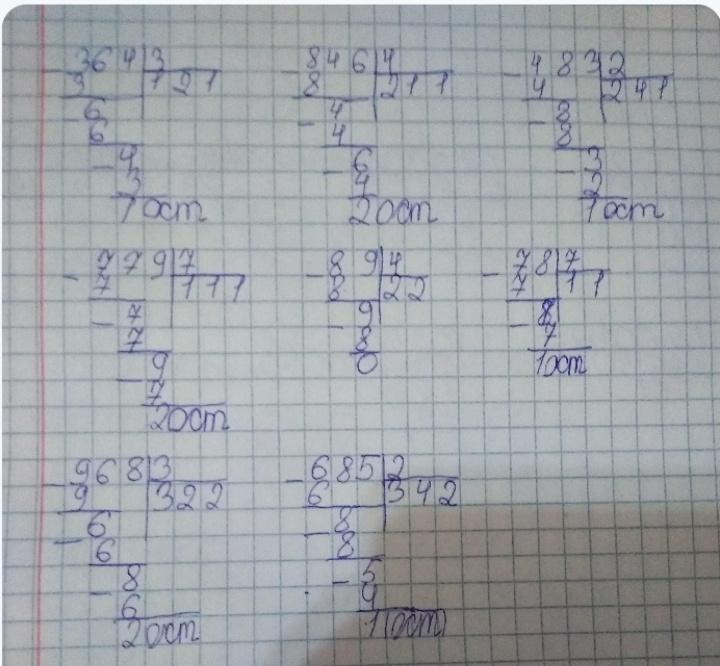 - 364 | 3
3 | 121
- 6
6
- 4
3
1 ост
- 846 | 4
8 | 211
- 4
4
- 6
4
2 ост
- 483 | 2
4 | 241
- 8
8
- 3
2
1 ост
- 779 | 7
7 | 111
- 7
7
- 9
7
2 ост
- 89 | 4
8 | 22
- 9
8
0
- 78 | 7
7 | 11
- 8
7
1 ост
- 968 | 3
9 | 322
- 6
6
- 8
6
2 ост
- 685 | 2
6 | 342
- 8
8
- 5
4
1 ост